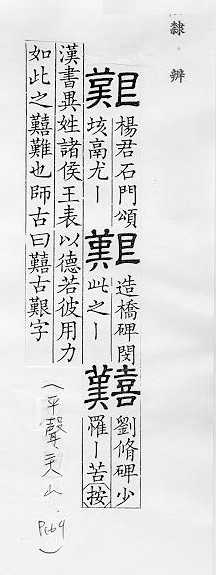 隸辨
艱 楊君石門頌
垓鬲尤丨
艱 造橋碑閔
此之丨
囏 劉脩碑少
罹丨苦按
漢書異姓諸侯王表以德若彼用力
如此之囏難也師古曰囏古艱字